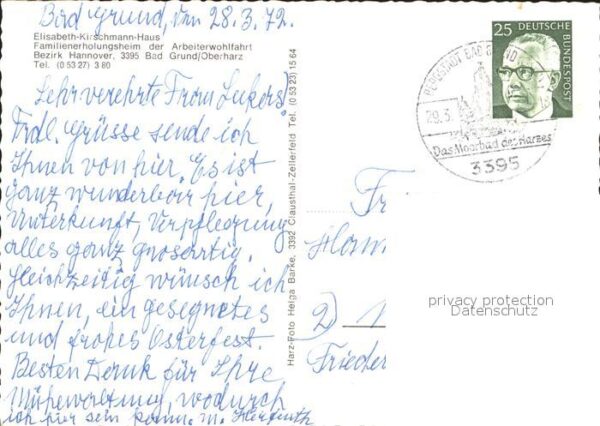 Bad Grund, den 28. 3. 72.
Elisabeth-Kirschmann-Haus
Familienerholungsheim der Arbeiterwohlfahrt
Bezirk Hannover, 3395 Bad Grund/Oberharz
Tel. (0 53 27) 3 80
Sehr verehrte Frau Lukers!
Frdl. Grüsse sende ich
Ihnen von hier, Es ist
ganz wunderbar hier,
Unterkunft, Verpflegung
alles ganz grosartig.
Gleichzeitig wünsch ich
Ihnen, ein gesegnetes
und frohes Osterfest.
Besten Dank für Ihre
Mühewaltung, wodurch
ich hier sein kann. M.
Harz-Foto Helga Barke, 3392 Clausthal-Zellerfeld Tel. (0 53 23) 15 64
25 DEUTSCHE BUNDESPOST
BERGSTADT BAD GRUND
29.3.
Das Moorbad des Harzes
3395
Fr
Han
2)
Frieder
privacy protection
Datenschutz